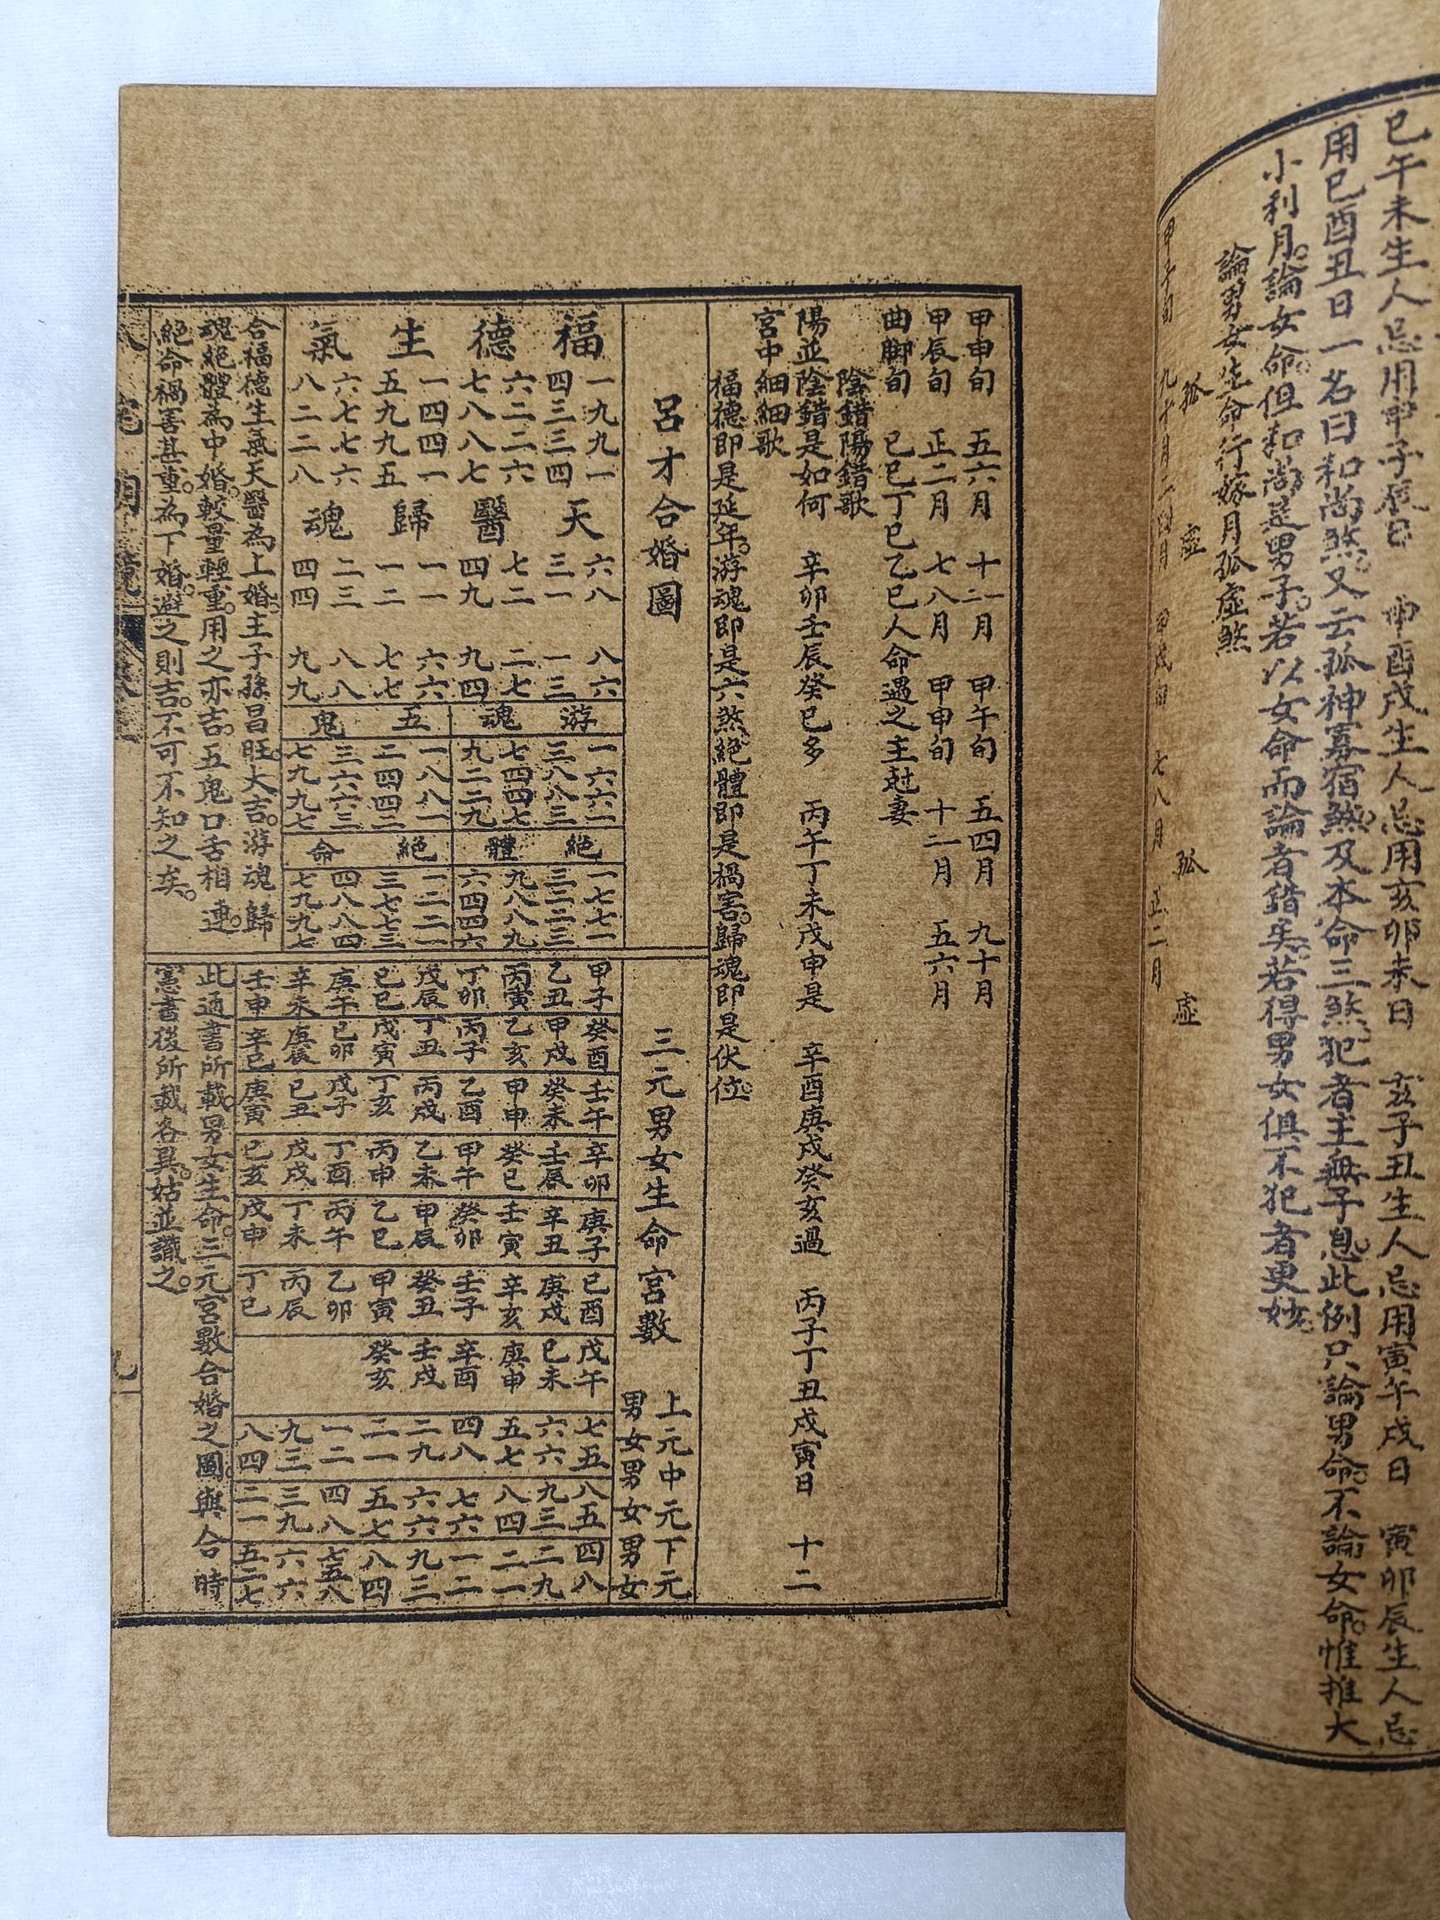 巳午未生人忌用申子辰日　申酉戌生人忌用亥卯未日　亥子丑生人忌用寅午戌日　寅卯辰生人忌
用巳酉丑日一名曰和尚煞又云孤神寡宿煞及本命三煞犯者主無子息此例只論男命不論女命惟推大
小利月論女命但和尚是男子若以女命而論者錯矣若得男女俱不犯者更妙
論男女生命行嫁月孤虛煞
孤　虛　孤　虛
甲子旬　九十月　三四月　甲戌旬　七八月　正二月
甲申旬　五六月　十一二月　甲午旬　五四月　九十月
甲辰旬　正二月　七八月　甲申旬　十一二月　五六月
曲脚旬　己巳丁巳乙巳人命遇之主尅妻
陰錯陽錯歌
陽並陰錯是如何　辛卯壬辰癸巳多　丙午丁未戊申是　辛酉庚戌癸亥過　丙子丁丑戊寅日　十二
宮中細細歌
福德即是延年游魂即是六煞絕體即是禍害歸魂即是伏位
呂才合婚圖
福德生氣
一九九一
四三三四
六二二六
七八八七
一四四一
五九九五
六七七六
八二二八
天醫歸魂
六八　八六
三一　一三
七二　二七
四九　九四
一一　六六
一二　七七
二三　八八
四四　九九
游魂
一六六一
三八八三
七四四七
九二二九
五鬼
一八八一
二四四二
三六六三
七九九七
絕體
一七七一
三二二三
九八八九
六四四六
絕命
一二二一
三七七三
四八八四
七九九七
合福德生氣天醫為上婚主子孫昌旺大吉游魂歸
魂絕體為中婚較量輕重用之亦吉五鬼口舌相連
絕命禍害甚重為下婚避之則吉不可不知之矣
三元男女生命宮數　上元中元下元
男女男女男女
甲子　癸酉　壬午　辛卯　庚子　己酉　戊午　七五　八五　四八
乙丑　甲戌　癸未　壬辰　辛丑　庚戌　己未　六六　九三　二九
丙寅　乙亥　甲申　癸巳　壬寅　辛亥　庚申　五七　八四　二一
丁卯　丙子　乙酉　甲午　癸卯　壬子　辛酉　四八　七六　一二
戊辰　丁丑　丙戌　乙未　甲辰　癸丑　壬戌　二九　六六　九三
己巳　戊寅　丁亥　丙申　乙巳　甲寅　癸亥　二一　五七　八四
庚午　己卯　戊子　丁酉　丙午　乙卯　一二　四八　七五八
辛未　庚辰　己丑　戊戌　丁未　丙辰　九三　三九　六六
壬申　辛巳　庚寅　己亥　戊申　丁巳　八四　二一　五二七
此通書所載男女生命三元宮數合婚之圖與合時
憲書後所載各異姑並識之
九